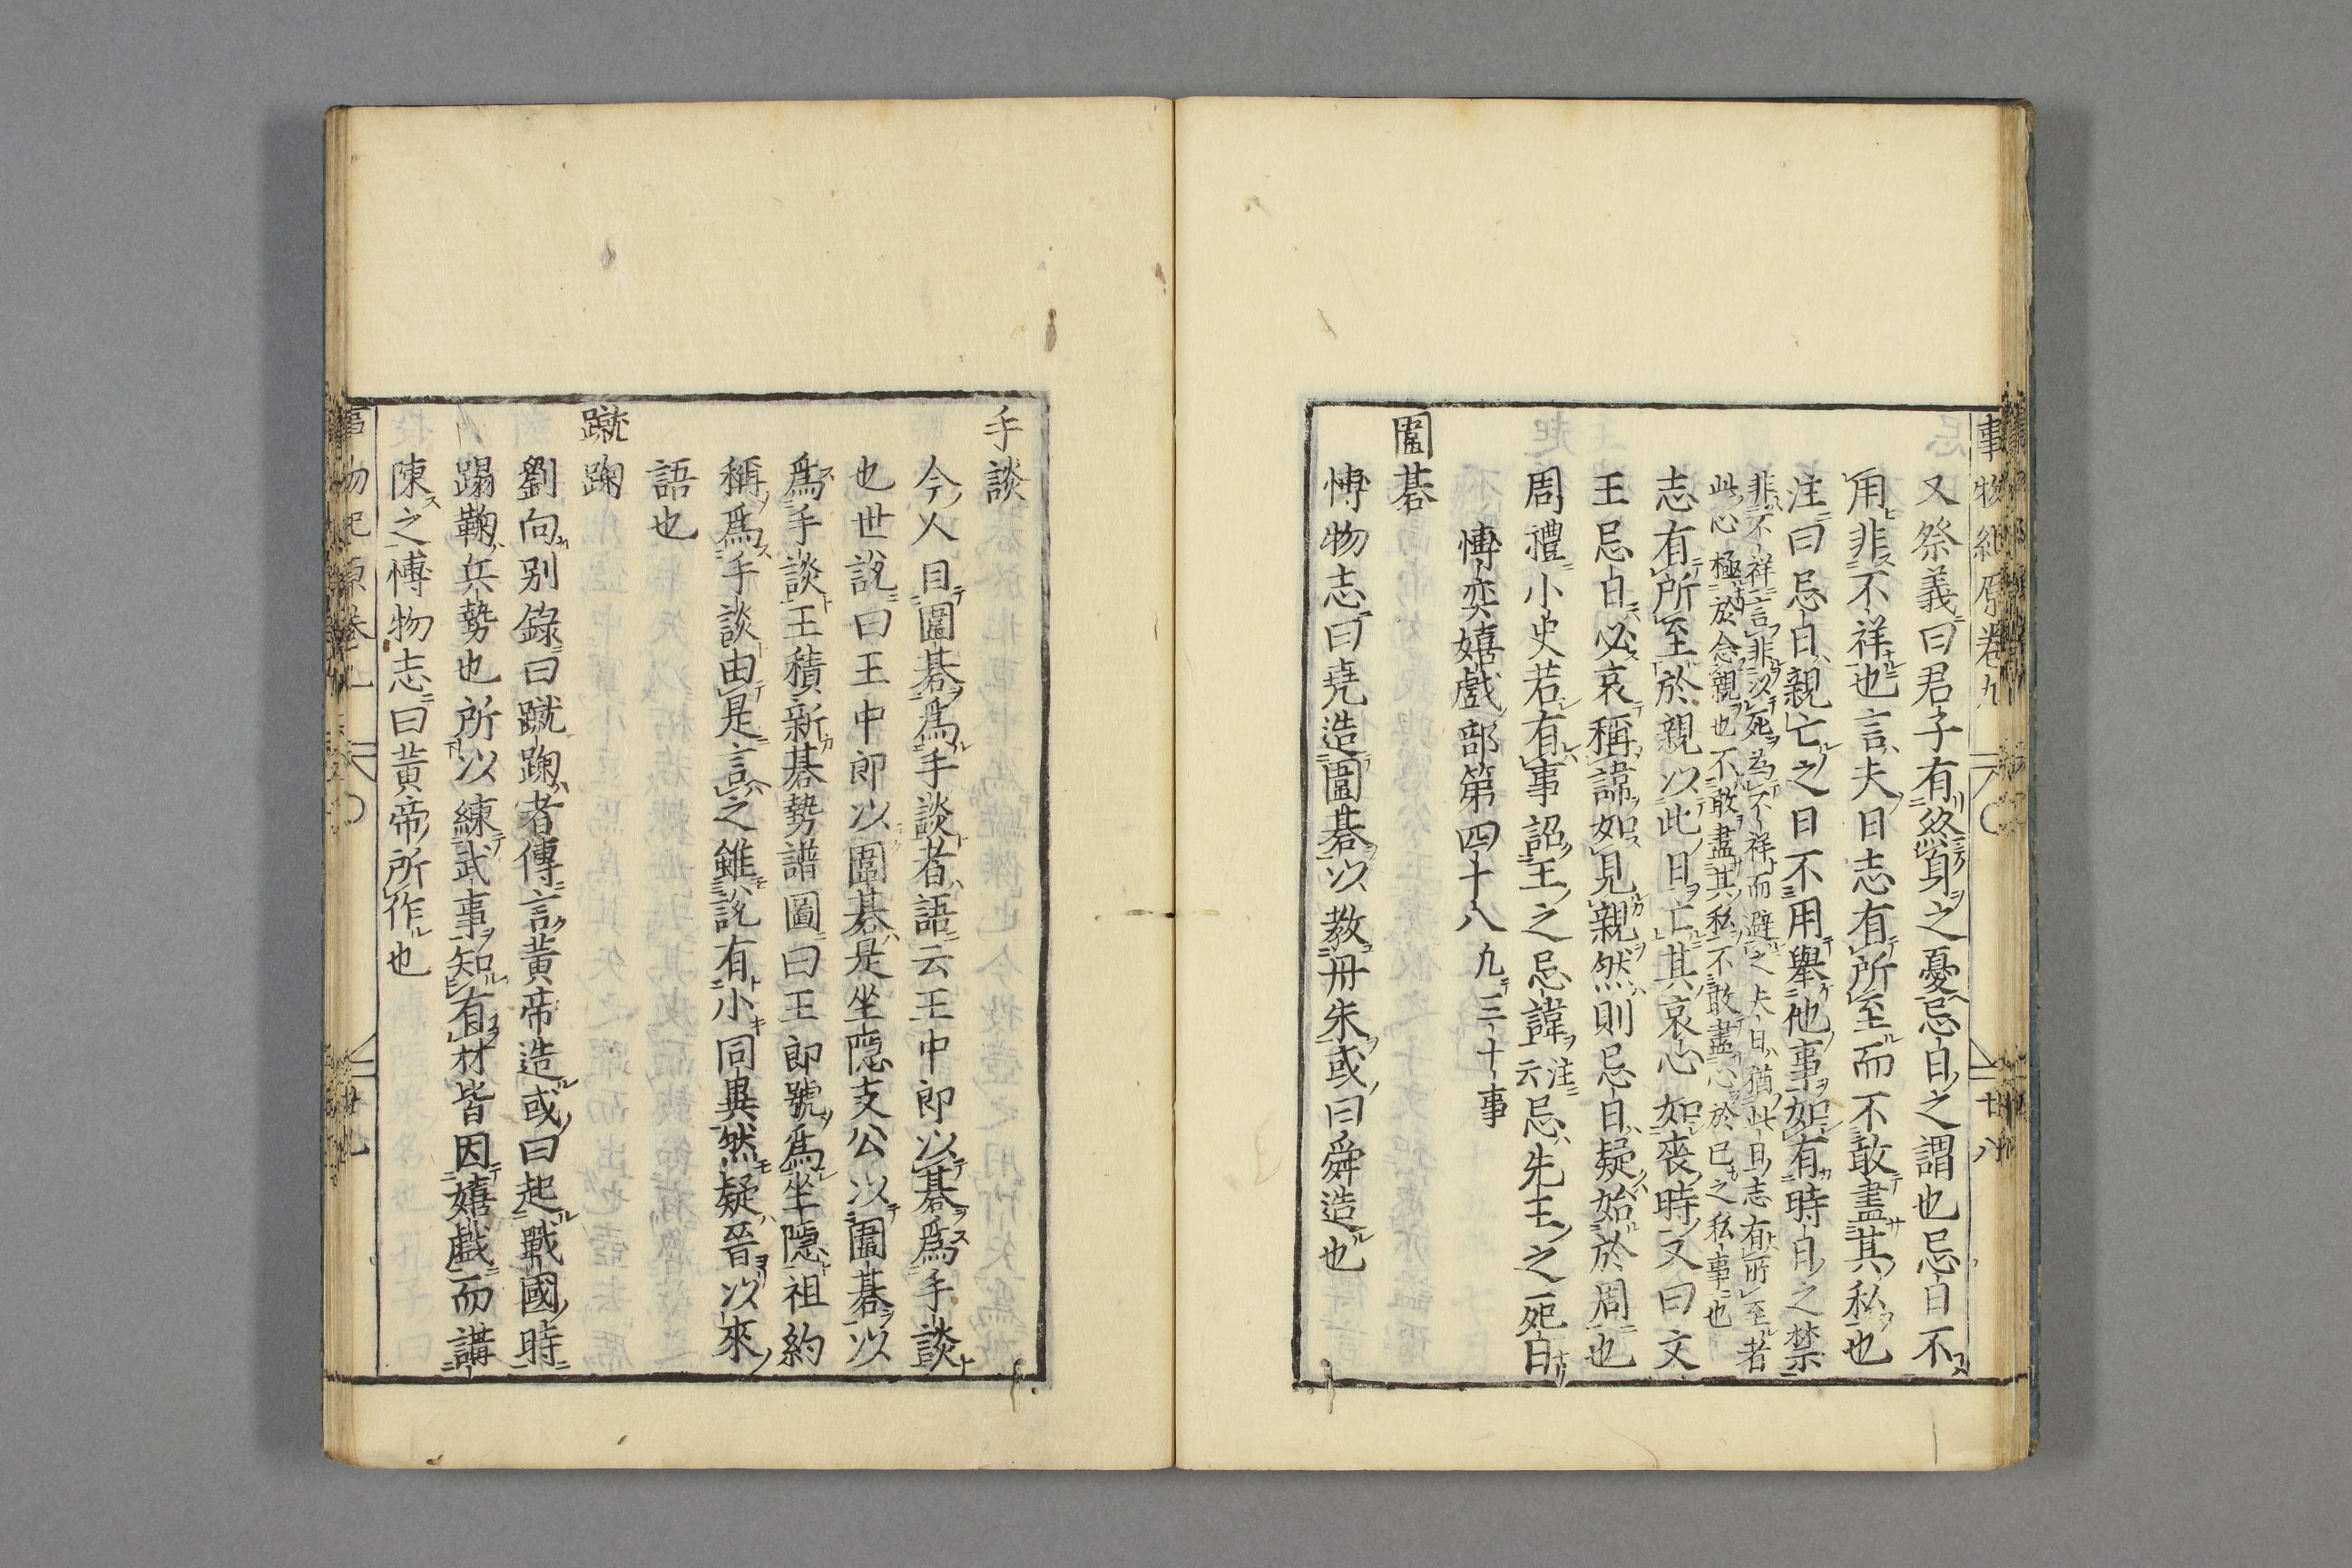 事物紀原卷九
十八
又祭義曰君子有終身之憂忌日之謂也忌日不
用非不祥也言夫日志有所至而不敢盡其私也
注曰忌日親亡之日不用舉他事如有時日之禁
非不祥言非以死為不祥而避之夫日猶此日志有所至者
此心極於念親也不敢盡其私不敢盡心於已之私事也
志有所至於親以此日亡其哀心如喪時又曰文
王忌日必哀稱諱如見親然則忌日疑始於周也
周禮小史若有事詔王之忌諱注云忌先王之死日
博奕嬉戲部第四十八 九三十事
圍碁
博物志曰堯造圍碁以教丹朱或曰舜造也
手談
今人目圍碁爲手談者語云王中郎以碁爲手談
也世説曰王中郎以圍碁是坐隠支公以圍碁以
爲手談王積新碁勢譜圖曰王郎號爲坐隠祖約
稱爲手談由是言之雖説有小同異然疑晉以來
語也
蹴踘
劉向别錄曰蹴踘者傳言黄帝造或曰起戰國時
蹋鞠兵勢也所以練武事知有材皆因嬉戲而講
陳之博物志曰黄帝所作也